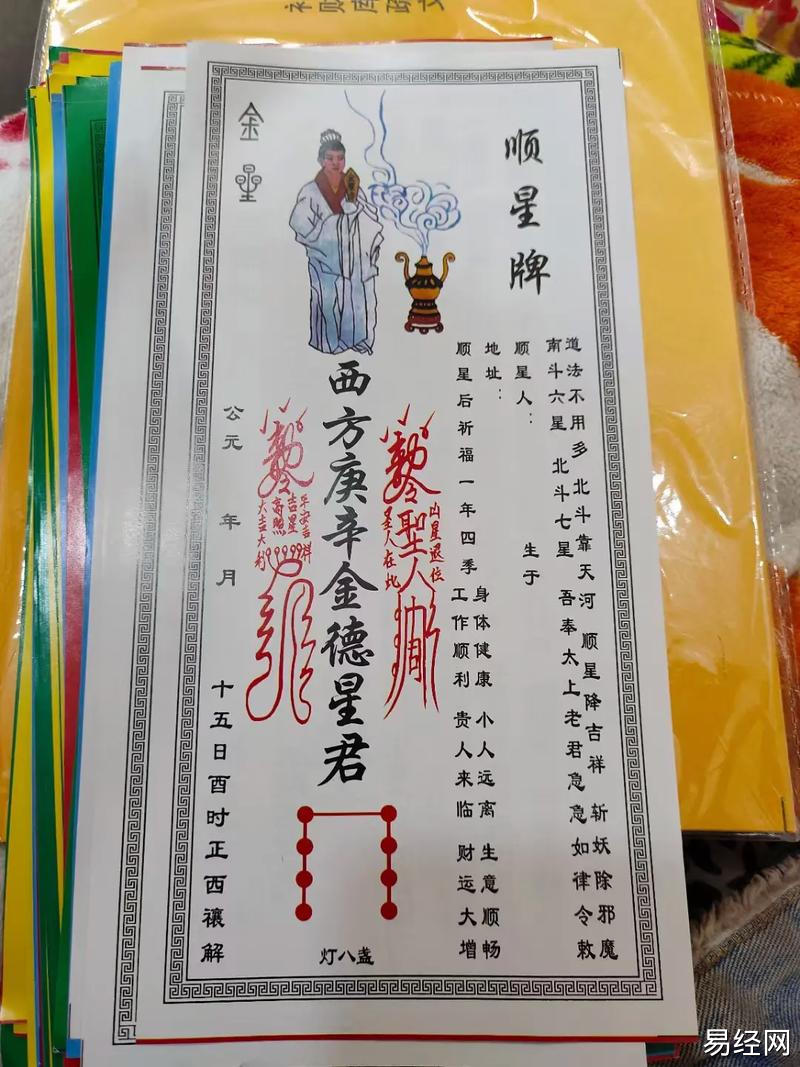 顺星牌
道法不用多 北斗靠天河 顺星降吉祥 斩妖除邪魔
南斗六星 北斗七星 吾奉太上老君急急如律令敕
顺星人： 生于
地址：
身体健康 小人远离 生意顺畅
顺星后祈福一年四季 工作顺利 贵人来临 财运大增
凶星退位
聖人
圣人在此
西方庚辛金德星君
平安吉祥
吉星高照
大吉大利
公元 年 月 十五日酉时正西禳解
金星
灯八盏
易经网